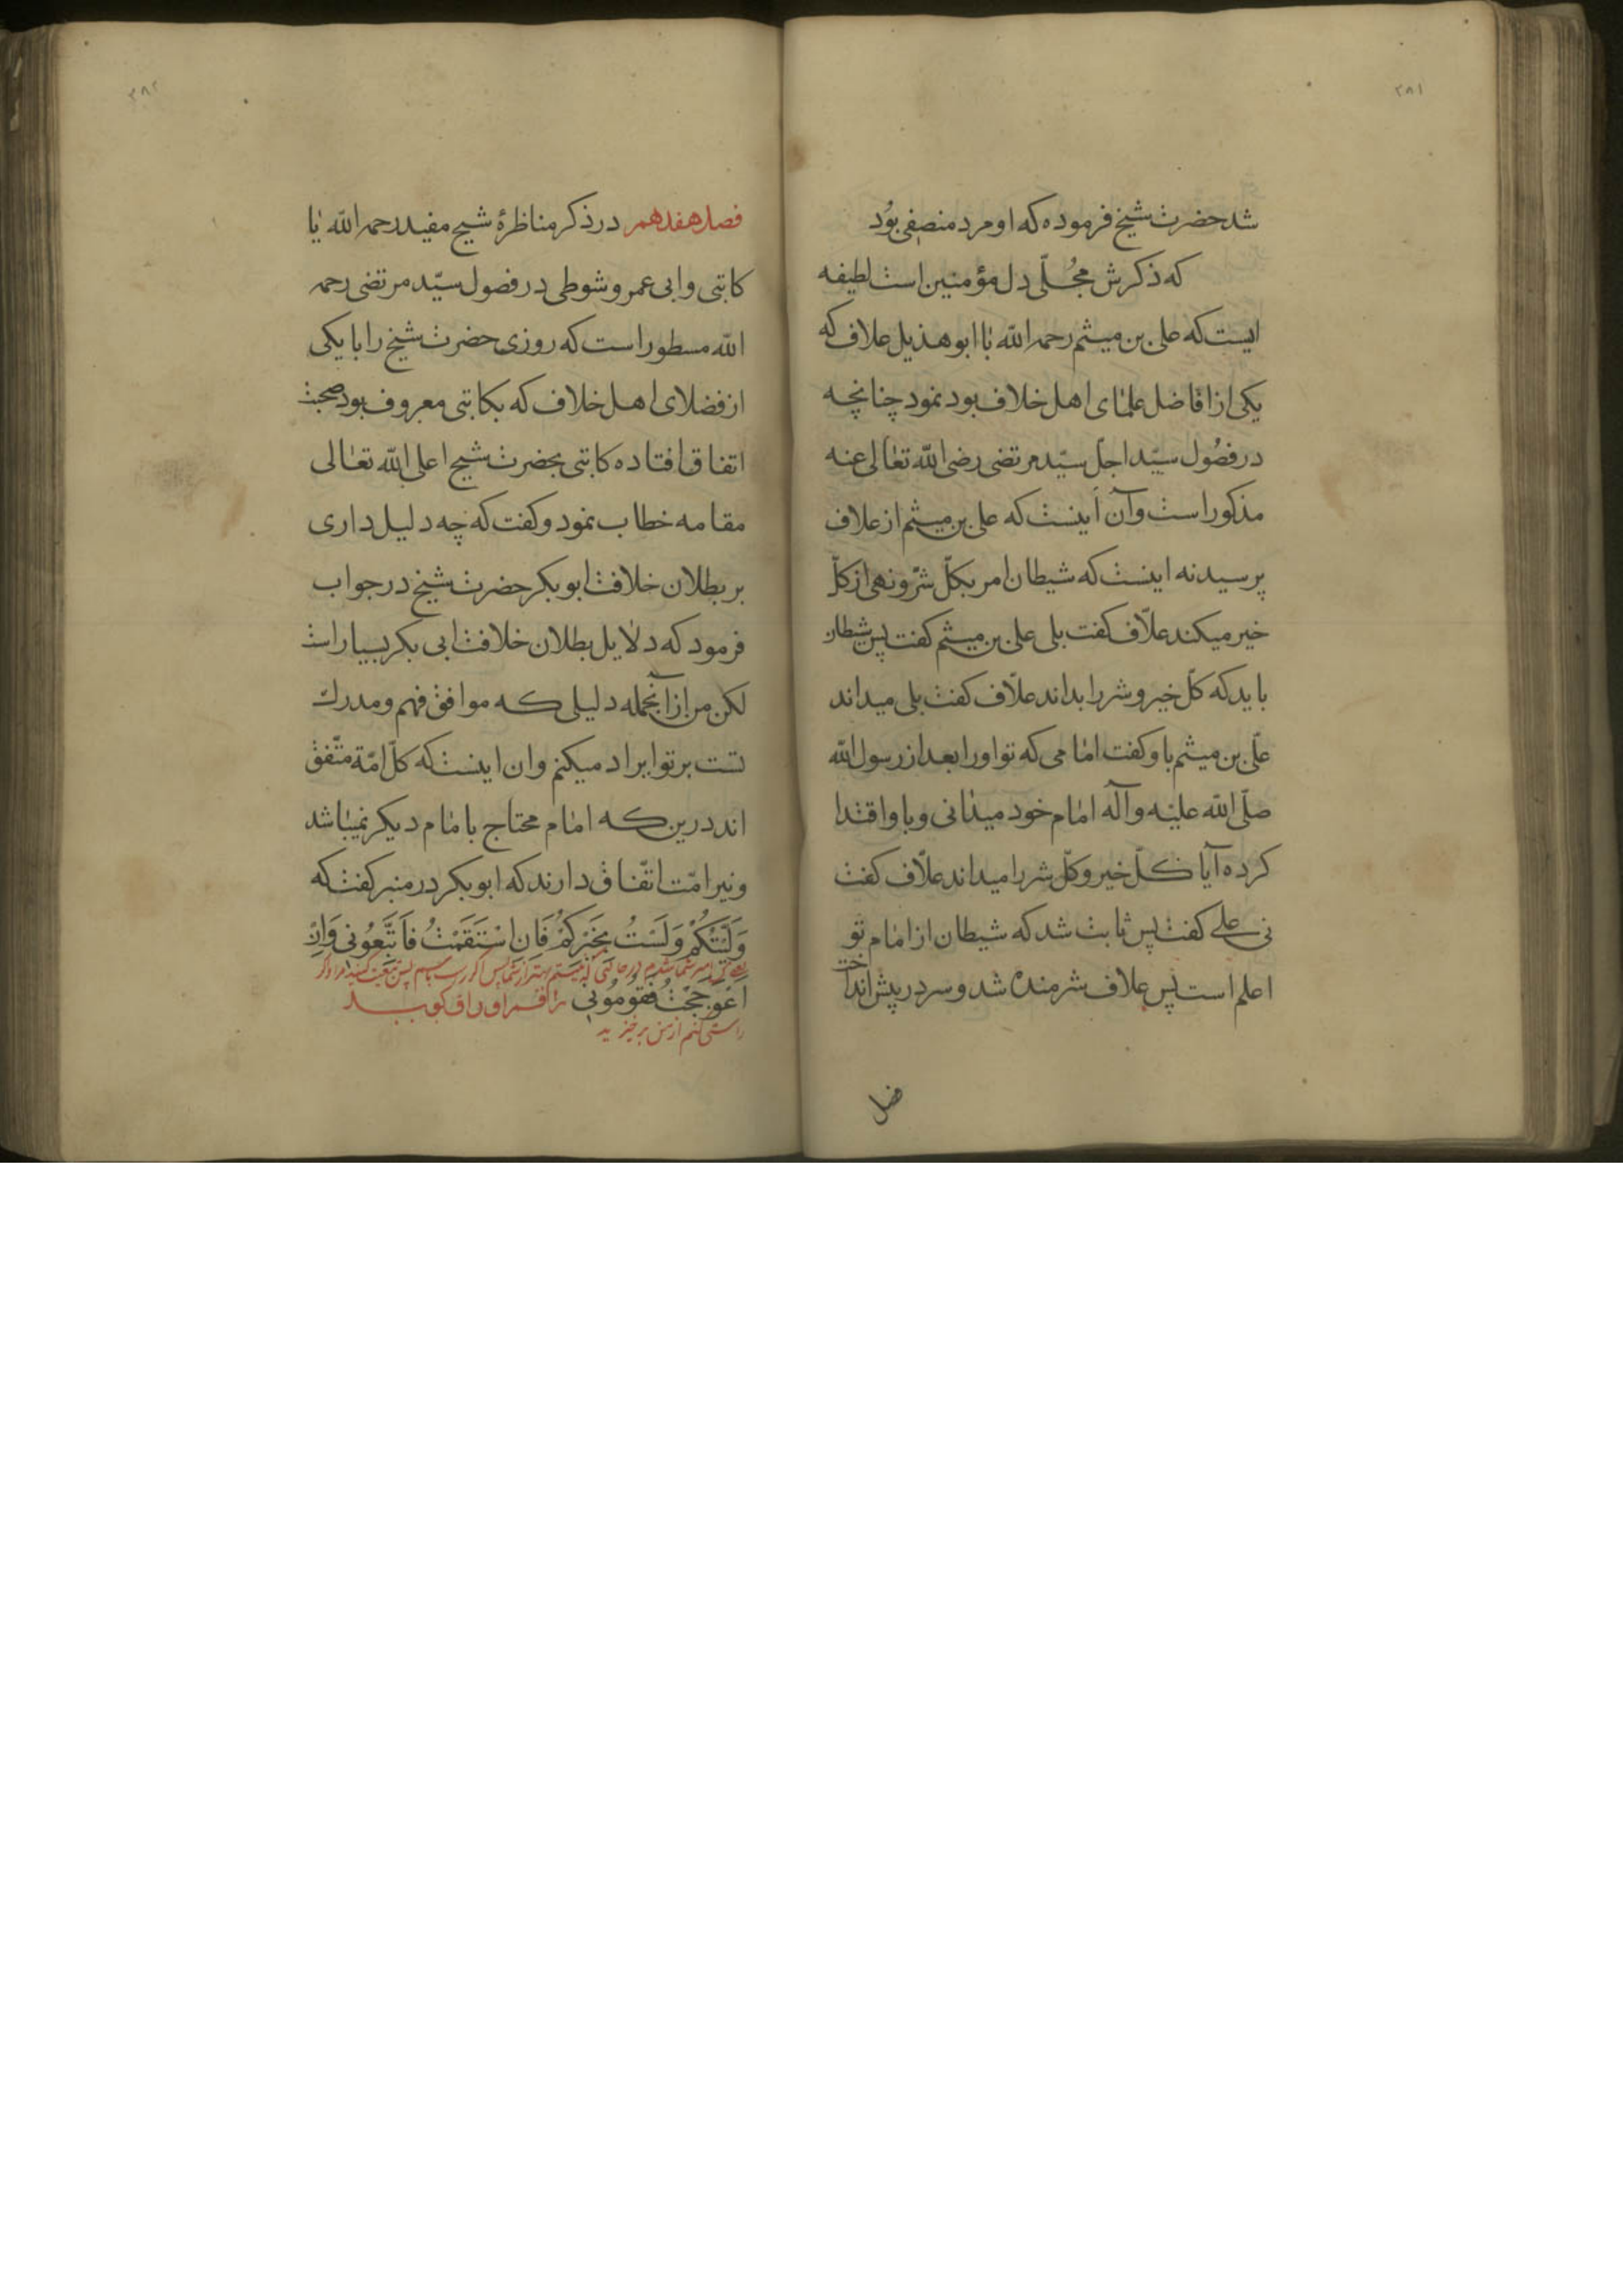 ۳۸۱
شد حضرت شیخ فرموده که او مرد منصفی بُود
که ذکرش مجُلّی دل مؤمنین است لطیفه
ایست که علی بن میثم رحمه الله با ابو هذیل علاف که
یکی از افاضل علمای اهل خلاف بود نمود چنانچه
در فصُول سیّد اجلّ سیّد مرتضی رضی الله تعالی عنه
مذکور است و آن اینست که علی بن میثم از علاف
پرسید نه اینست که شیطان امر بکلّ شرّ و نهی از کلّ
خیر میکند علّاف کفت بلی علی بن میثم کفت پس شیطان
باید که کلّ خیر و شر را بداند علّاف کفت بلی میداند
علّی بن میثم باو کفت امامی که تو او را بعد از رسول الله
صلّی الله علیه وآله امام خود میدانی و باو اقتدا
کرده آیا کلّ خیر و کلّ شر را میداند علّاف کفت
نی علی کفت پس ثابت شد که شیطان از امام تو
اعلم است پس علاف شرمنده شد و سر در پیش انداخت
فصل
۳۸۲
فصل هفدهم در ذکر مناظرهٔ شیخ مفید رحمه الله با
کاتبی و ابی عمر و شوطی در فصول سیّد مرتضی رحمه
الله مسطور است که روزی حضرت شیخ را با یکی
از فضلای اهل خلاف که بکاتبی معروف بود صحبت
اتفاق افتاده کاتبی بحضرت شیخ اعلی الله تعالی
مقامه خطاب نمود و کفت که چه دلیل داری
بر بطلان خلافت ابو بکر حضرت شیخ در جواب
فرمود که دلایل بطلان خلافت ابی بکر بسیار است
لکن من از آنجمله دلیلی که موافق فهم و مدرك
تست بر تو ایراد میکنم و ان اینست که کلّ امّة متّفق
اند درین که امام محتاج بامام دیکر نمیباشد
و نیز امّت اتّفاق دارند که ابو بکر در منبر کفت که
وَلَیْتُکُمْ وَلَسْتُ بِخَیْرِکُمْ فَاِنِ اسْتَقَمْتُ فَاتَّبِعُونی وَاِنْ
امیر شما شدم در حالتی که نیستم بهتر از شما پس اکر راست باشم پس متابعت کنید مرا و اکر
اعْوَجَجْتُ فَقَوِّمُونی
راستی کنم از من برخیزید